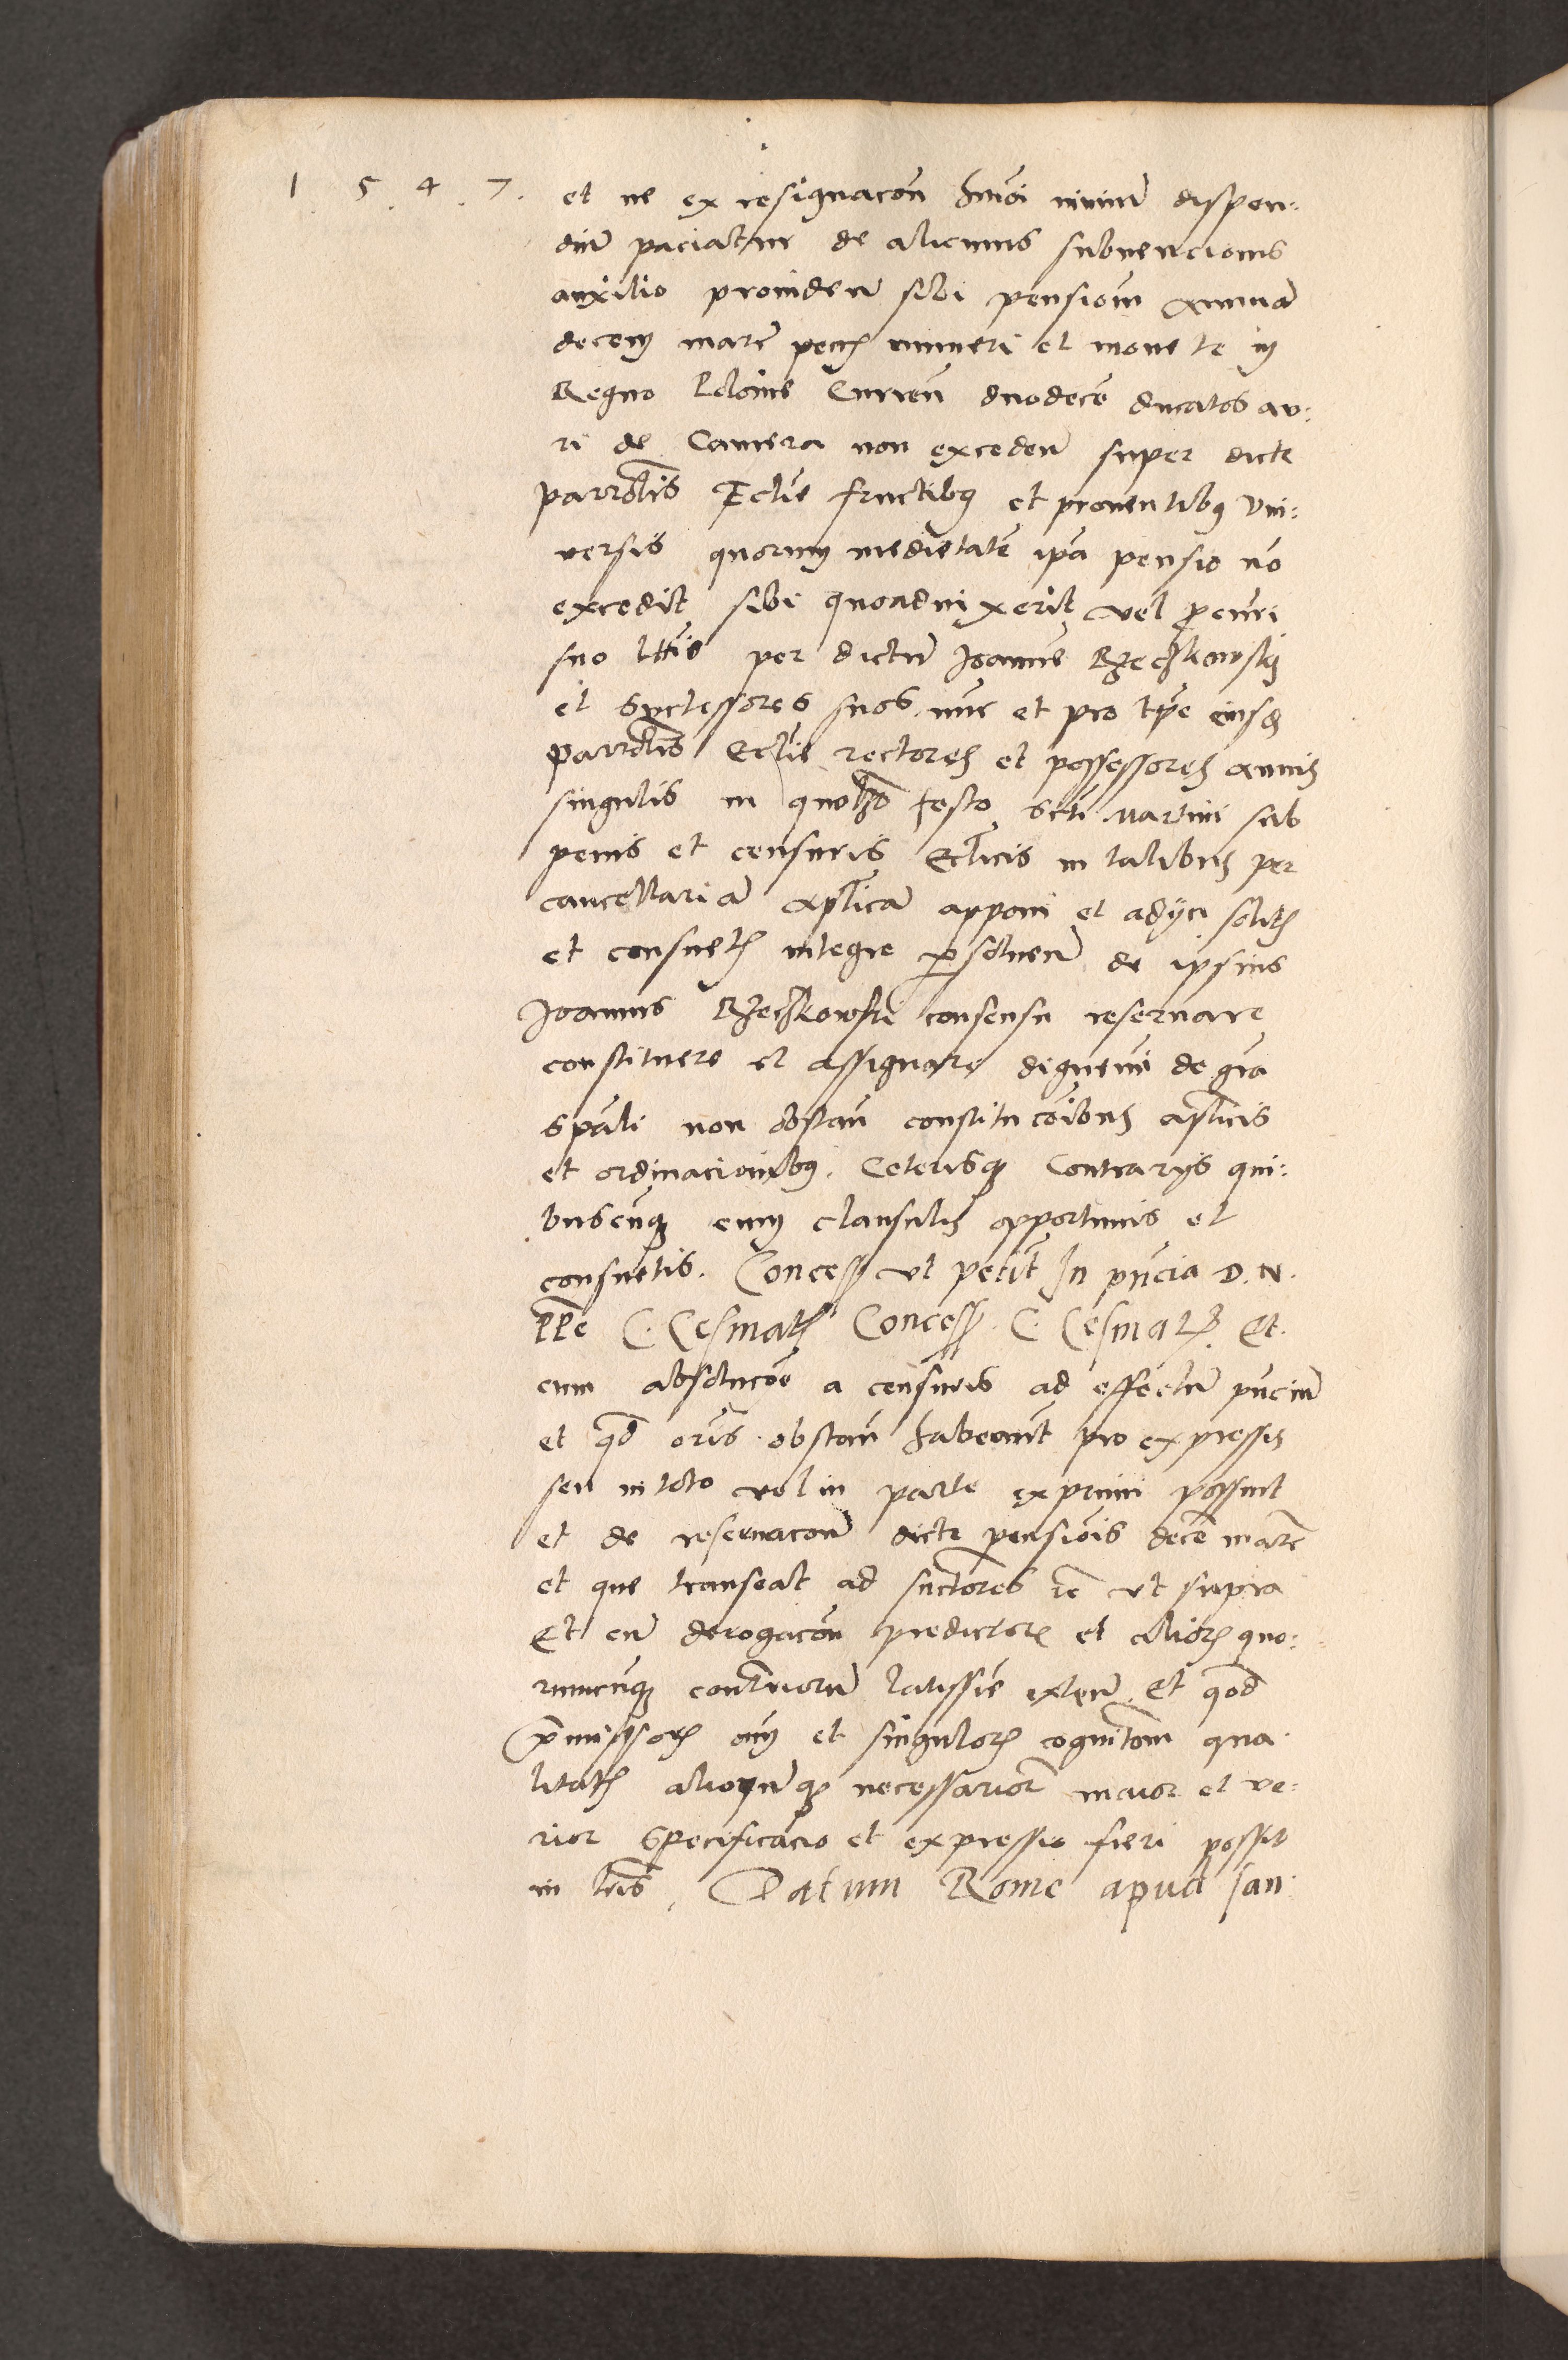 1 . 5 . 4 . 7 .
et ne ex resignacoñ hm̃oi nimiũ dispen:
diũ paciatur de alicuius subuencionis
auxilio prouidere sibi pensioñ annuã
decem marc̃ pecũ numeri et monete in
Regno Poloniẽ Curreñ duodecẽ ducatos au:
ri de Camera non excedeñ super dicte
parrõlis Ecclie fructibꝰ et prouentibꝰ vni:
versis quorum medietatẽ ipã pensio nõ
excedit sibi quoad vixerit vel procuri
suo ltti̅e per dictũ Joannẽ Rzeczkowskj
et Successores suos nũc et pro tp̃e eiusd̃
parrõlis Ecclie rectores et possessores annis
singulis in quoltd̃ festo scti Martini sub
penis et censuris Ecclicis in talibus per
cancellariã aplicã apponi et adijci solitis
et consuetis integre persolueñ de ipsius
Joannis Rzeczkowski consensu reseruare
constituere et assignare dignemi de grã
spãli non obstañ constitucõibus aplicis
et ordinacionibꝰ. Ceterisqꝫ Contrarijs qui:
buscunqꝫ cum clausulis opportunis et
consuetis. Concess̃ vt petit̃ In pñcia D. N.
PPe C. Cesinat̃ Concess̃ C. Cesinat̃. Et
cum absolucõe a censuris ad effectũ pñciũ
et qd̃ oẽis obstañ habeant̃ pro expressis
seu in toto vel in parte exprimi possint
et de reseruacoñ dicte pensiõis decẽ marc̃
et que transeat ad suctores zc̃ vt supra
Et cũ derogacoñ predictorꝫ et aliorꝫ quo:
rumcunqꝫ contrariorũ latissiẽ exteñ Et qod̃
premissorꝫ om̃ et singulorꝫ cogni̅tom qua:
litatꝫ aliorumqꝫ necessariorꝫ maior et ve:
rior Specificacio et expressio fieri possit
in lr̃is, Datum Rome apud San: